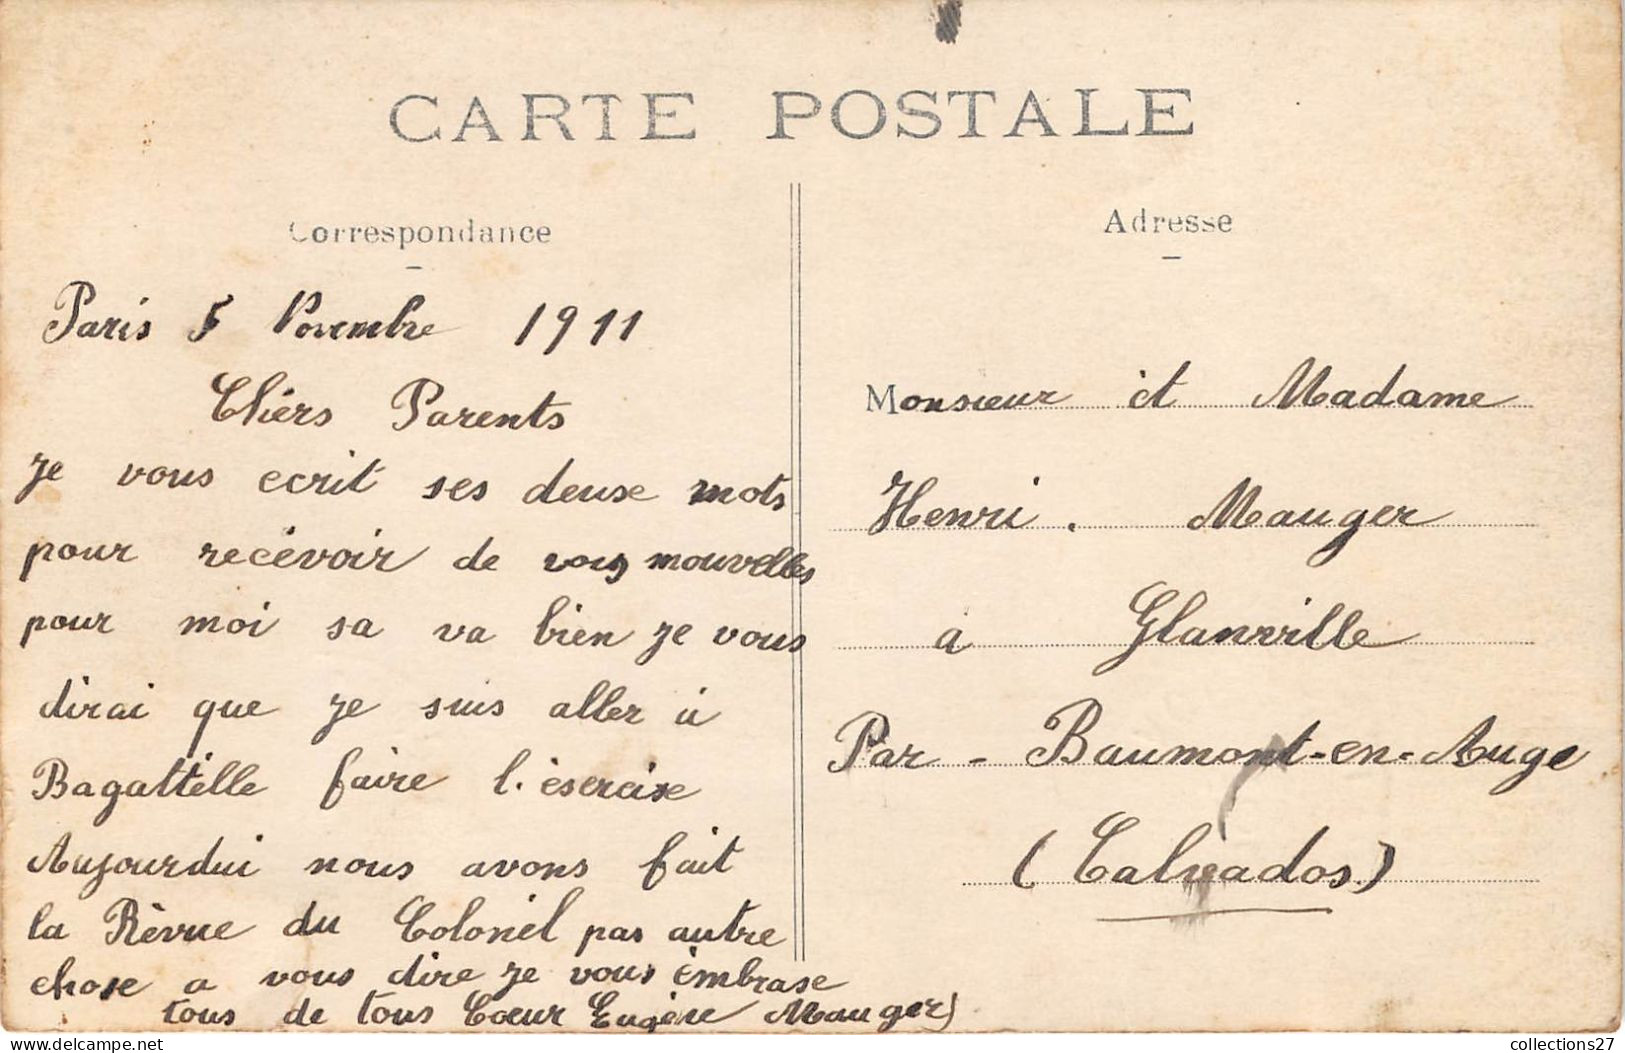 CARTE POSTALE
Correspondance
Paris 5 Novembre 1911
Chèrs Parents
Je vous ecrit ses deuse mots
pour recévoir de vos nouvelles
pour moi sa va bien Je vous
dirai que Je suis aller à
Bagattélle faire l'ésercise
Aujourdui nous avons fait
la Rèvue du Colonél pas autre
chose a vous dire Je vous émbrase
tous de tous Cœur Eugène Mauger)
Adresse
Monsieur èt Madame
Henri. Mauger
a Glanville
Par - Baumont-en-Auge
(Calvados)
collections27